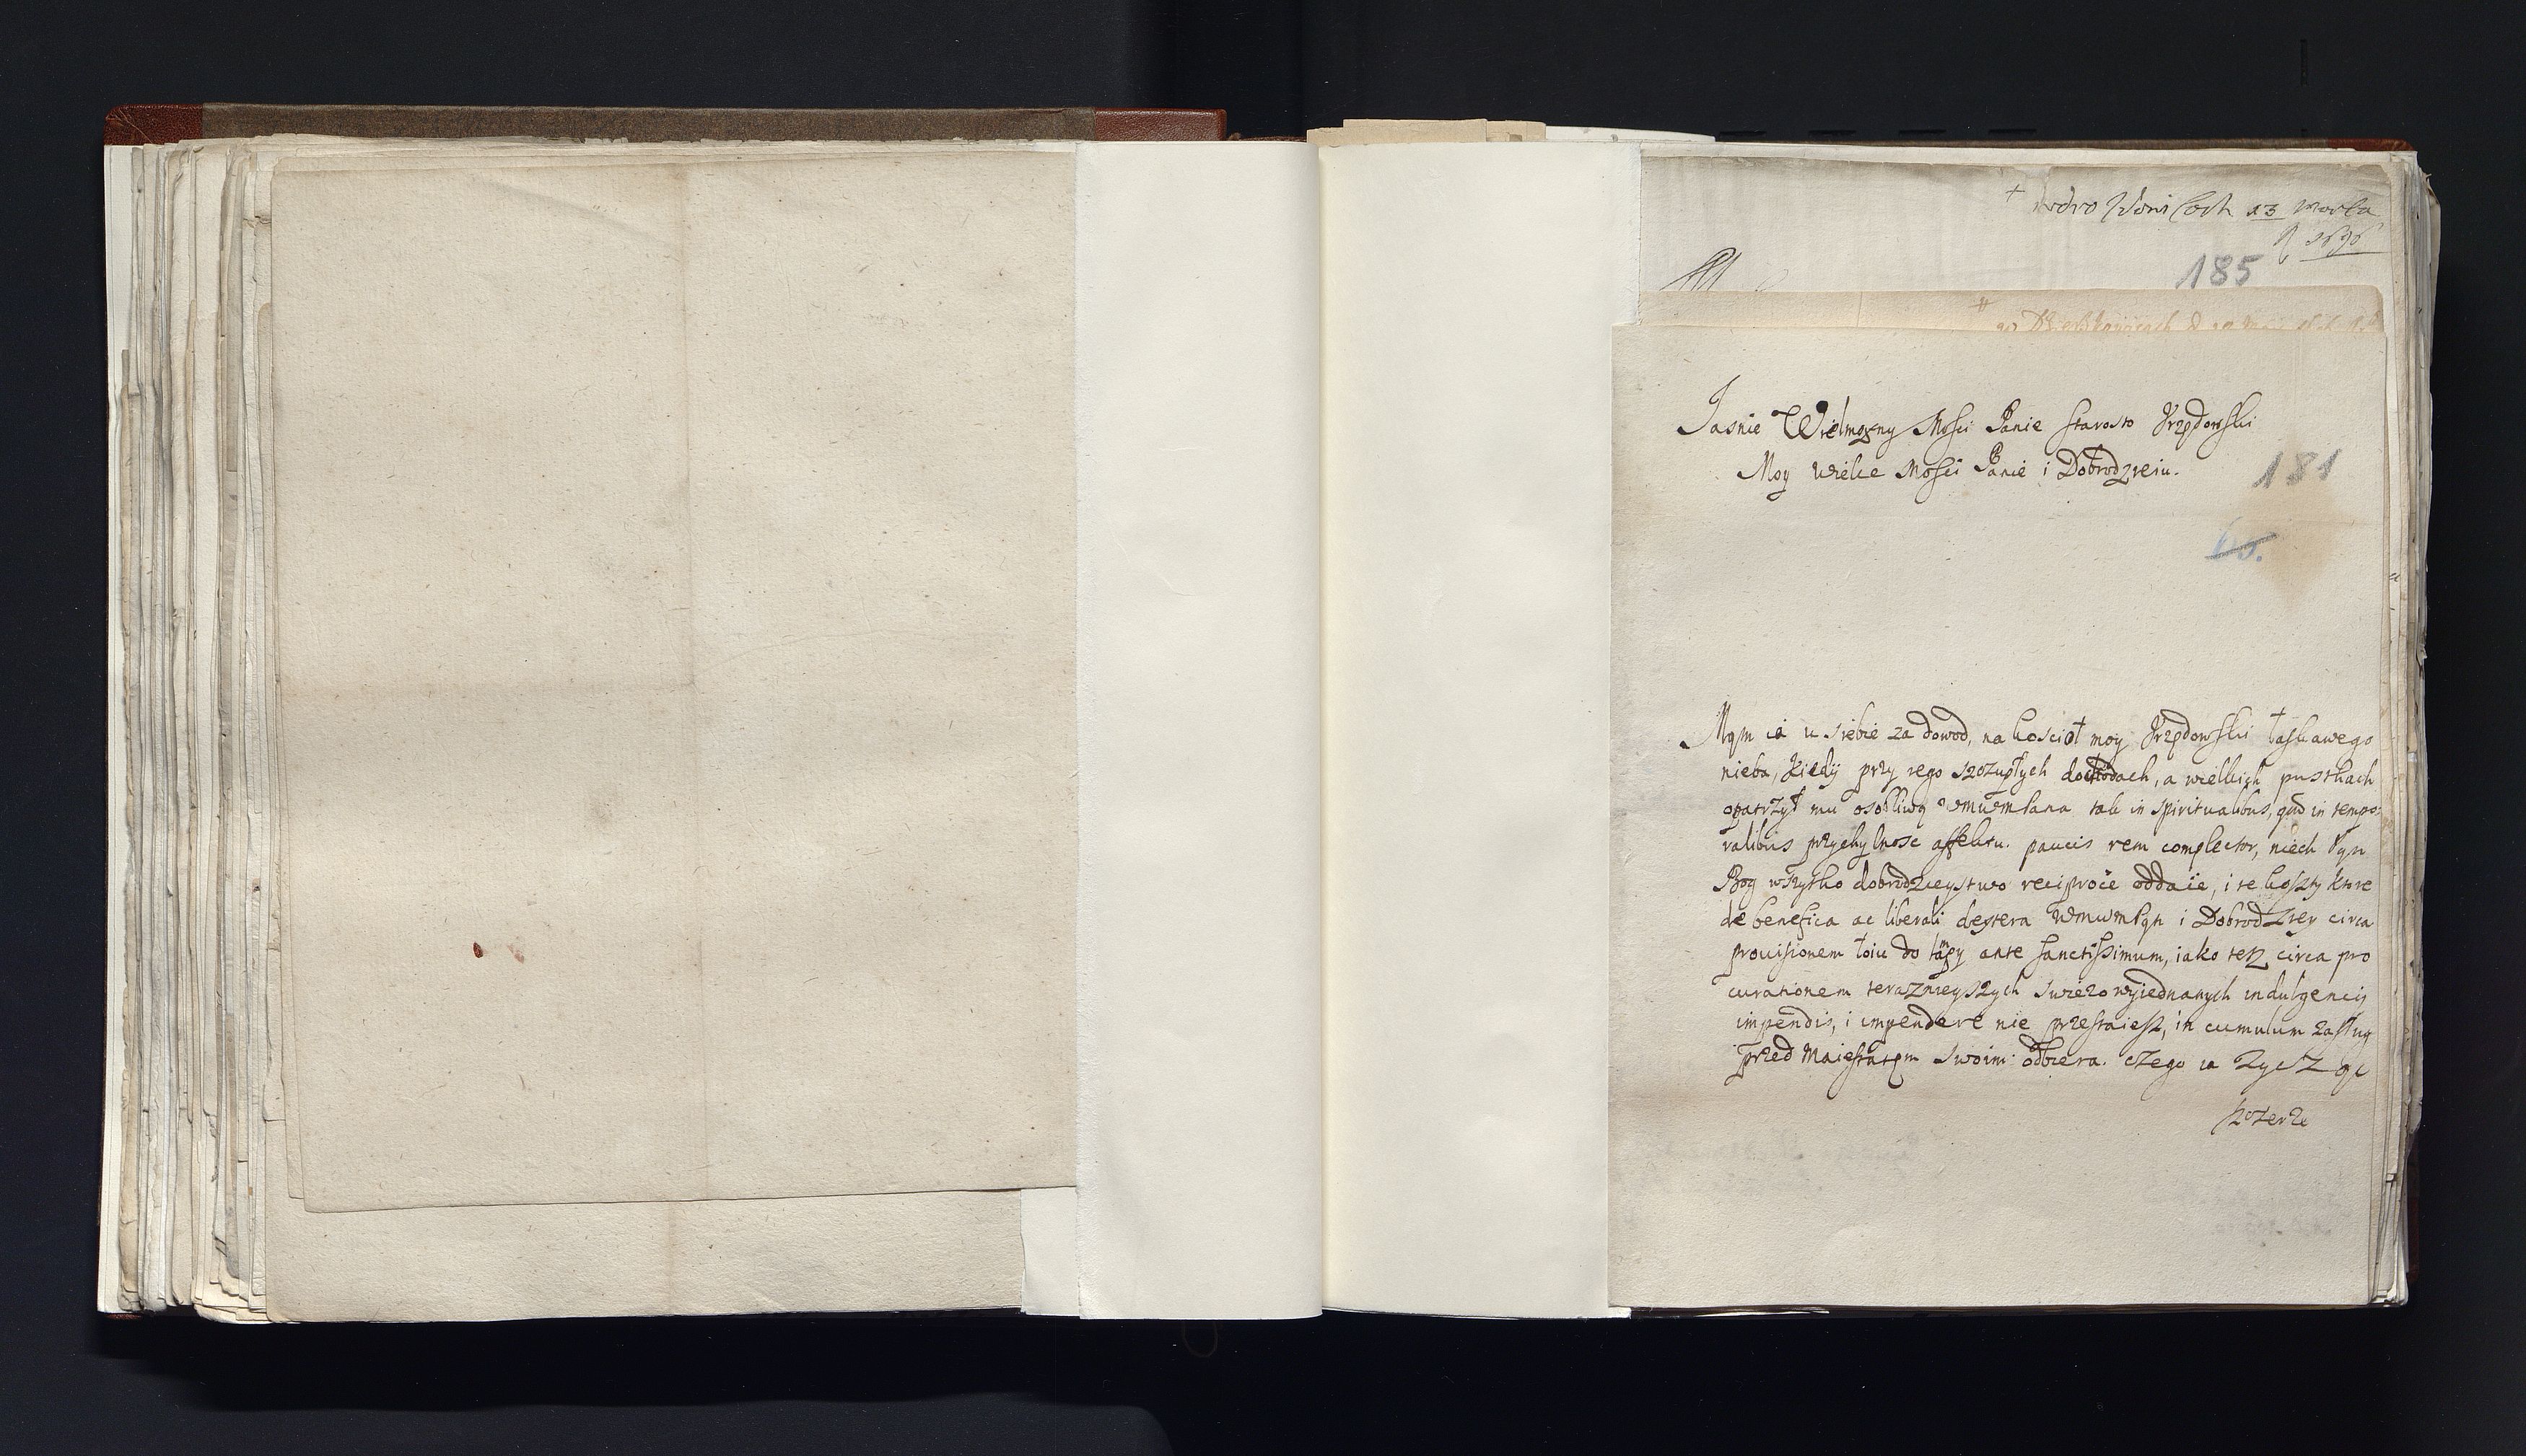 13 Marta
1696
185
Jasnie Wielmozny Mosci Panie Starosto Vrzędowski
Moy Wielce Mosci Panie i Dobrodzieiu.
181
Mąm ia u siebie za dowod, na koscioł moy Vrzędowski łaskawego
nieba, kiedy przy iego szczupłych dochodach, a wielkich pustkach
opatrzył mu osobliwą WMWMPana tak in spiritualibus, qua in tempo:
ralibus przychylnosc affektu. paucis rem complector, niech Pąn
Bog wszytko dobrodzieystwo reciproce oddaie, i te koszty ktore
de benefica ac liberali dextera WMWMPąn i Dobrodziey circa
prouisionem łoiu do lampy ante Sanctissimum, iako tesz circa pro
curationem teraznieyszych swiezo wyiednanych indulgencij
impendis, i impendere nie przestaiesz, in cumulum zasług
przed Maiestatem Swoim odbiera. czego ia zycząc
szczerze